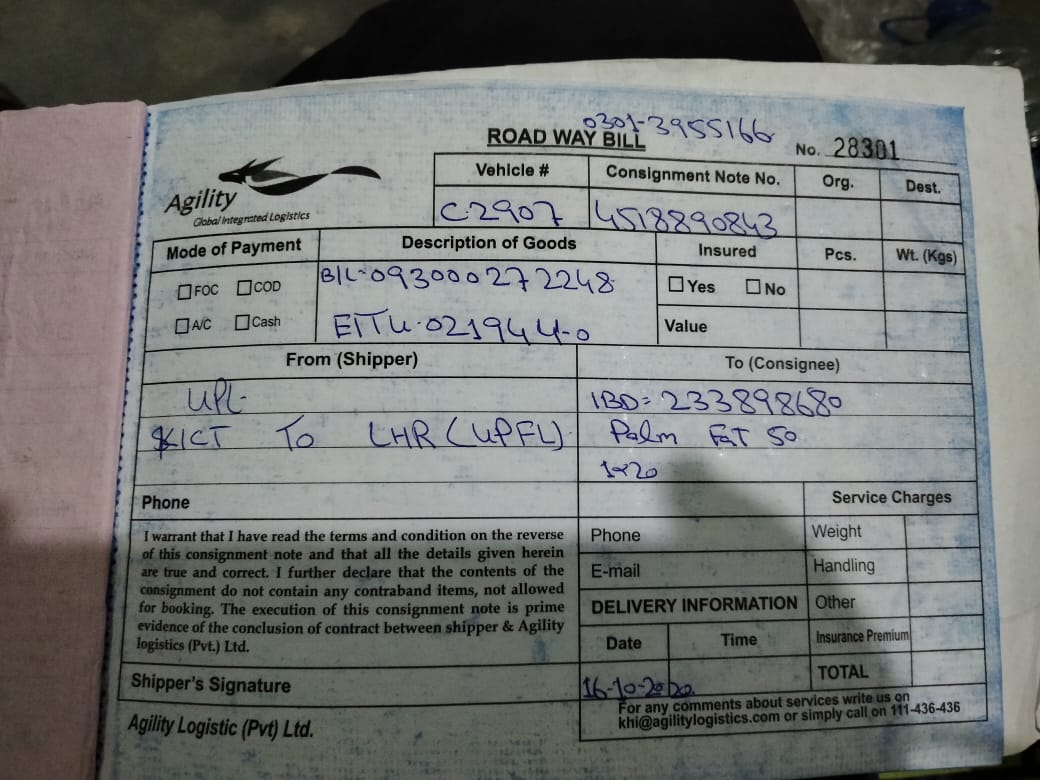 0301-3955166
ROAD WAY BILL
No. 28301
Agility
Global Integrated Logistics
Vehicle # Consignment Note No. Org. Dest.
C-2907 4518890843
Mode of Payment Description of Goods Insured Pcs. Wt. (Kgs)
FOC COD B/L-093000272248 Yes No
A/C Cash EITU-021944-0 Value
From (Shipper) To (Consignee)
UPL- IBD=233898680
KICT To LHR (UPFL) Palm FaT 50
1x20
Phone Service Charges
I warrant that I have read the terms and condition on the reverse
of this consignment note and that all the details given herein
are true and correct. I further declare that the contents of the
consignment do not contain any contraband items, not allowed
for booking. The execution of this consignment note is prime
evidence of the conclusion of contract between shipper & Agility
logistics (Pvt.) Ltd.
Phone Weight
E-mail Handling
DELIVERY INFORMATION Other
Date Time Insurance Premium
16-10-2020 TOTAL
Shipper's Signature
For any comments about services write us on
khi@agilitylogistics.com or simply call on 111-436-436
Agility Logistic (Pvt) Ltd.